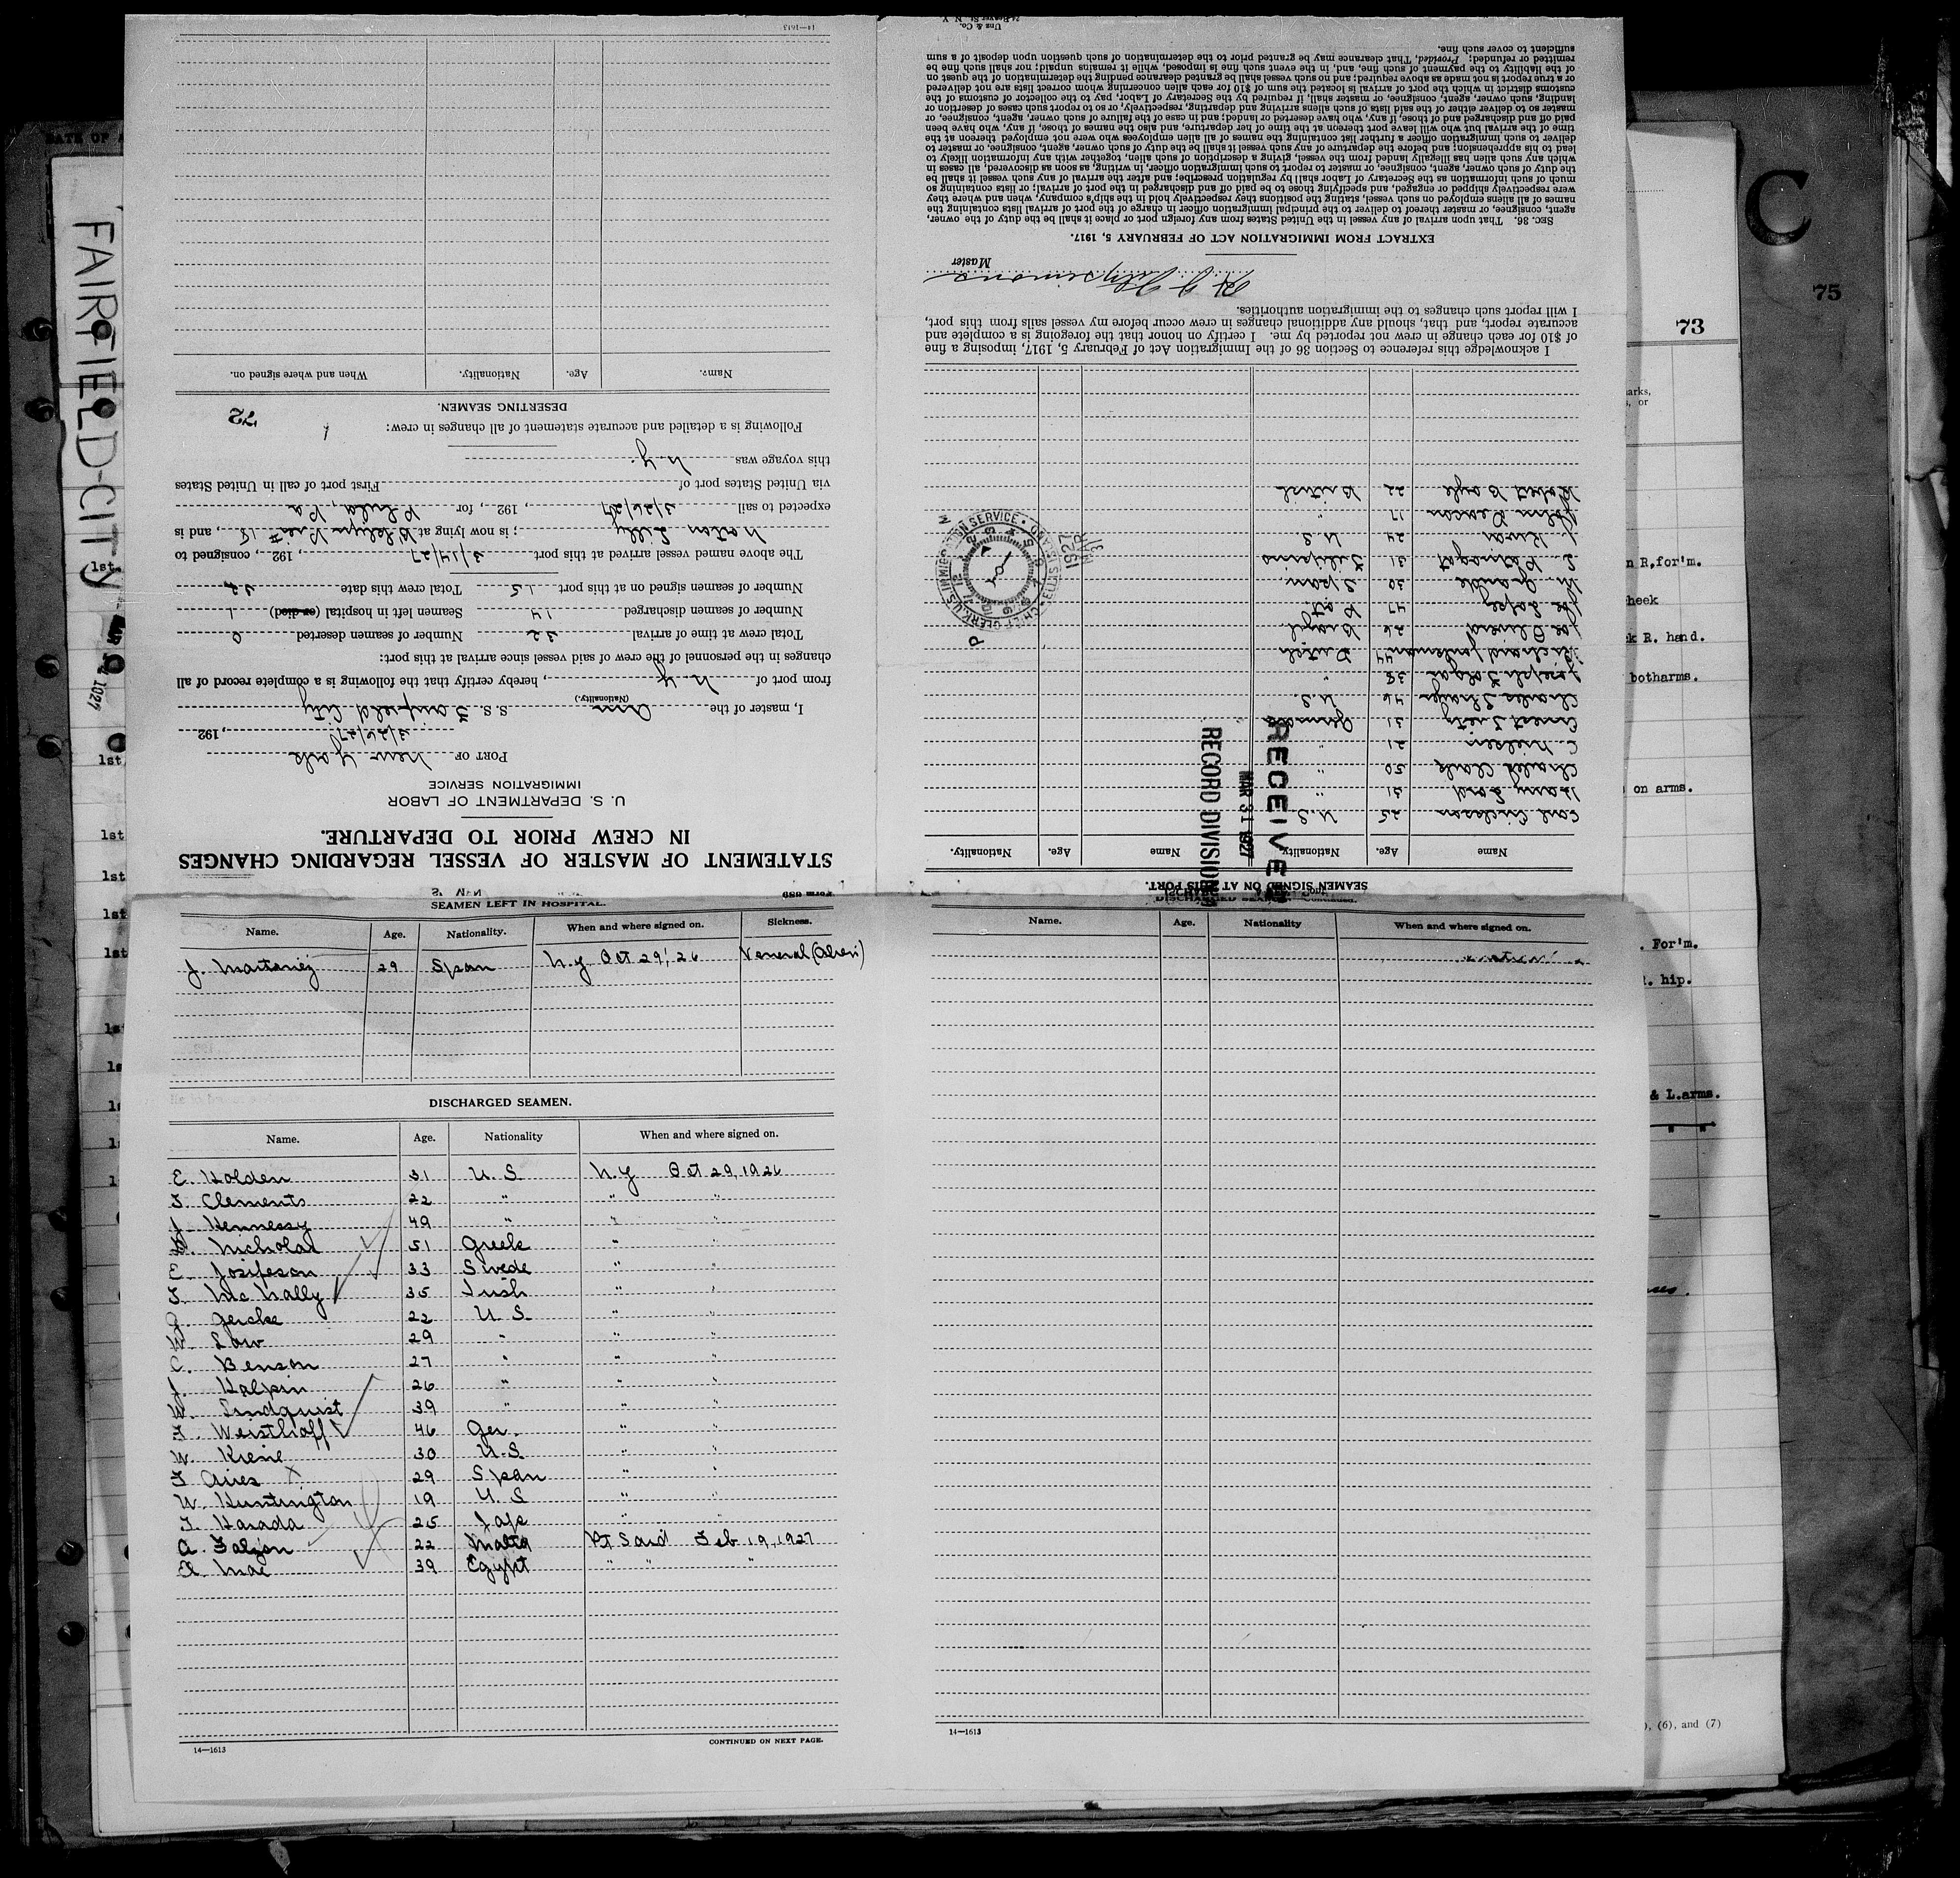 FAIRFIELD-CITY
C
75
73
72
STATEMENT OF MASTER OF VESSEL REGARDING CHANGES
IN CREW PRIOR TO DEPARTURE.
U. S. DEPARTMENT OF LABOR
IMMIGRATION SERVICE
PORT OF New York
3/26/27, 192
I, master of the Am S. S. Fairfield City
(Nationality.)
from port of N. Y., hereby certify that the following is a complete record of all
changes in the personnel of the crew of said vessel since arrival at this port:
Total crew at time of arrival 32 Number of seamen deserted 0
Number of seamen discharged 14 Seamen left in hospital (or died) 1
Number of seamen signed on at this port 15 Total crew this date 32
The above named vessel arrived at this port 3/14/27, 192, consigned to
Norton Lilly; is now lying at Bklyn Pier # 18, and is
expected to sail 3/26/27, 192, for Phila, Pa
via United States port of First port of call in United States
this voyage was N.Y.
Following is a detailed and accurate statement of all changes in crew:
DESERTING SEAMEN.
Name. Age. Nationality. When and where signed on.
14—1613
SEAMEN SIGNED ON AT THIS PORT.
Name Age. Nationality. Name Age. Nationality.
Carl Erickson 25 U.S.
Harry Lord 31 "
Charles Clark 50 "
C. Nielsen 21 "
Ernest Tietz 31 Germany
Charles Thayer 46 U.S.
Joseph Folgar 38 "
Richard 44 Dutch
Joe Oliverd 26 Brazil
Joe Lopez 47 Port
M. Grande 30 Span
S. 31 Filipino
J. Kwan 24 U S
John Deacon 17 "
Robert Boyle 22 British
RECEIVED
MAR 31 1927
RECORD DIVISION
CHIEF CLERK, U.S. IMMIGRATION SERVICE • ELLIS ISLAND •
MAR 31 1927
I acknowledge this reference to Section 36 of the Immigration Act of February 5, 1917, imposing a fine
of $10 for each change in crew not reported by me. I certify on honor that the foregoing is a complete and
accurate report, and that, should any additional changes in crew occur before my vessel sails from this port,
I will report such changes to the immigration authorities.
Master
EXTRACT FROM IMMIGRATION ACT OF FEBRUARY 5, 1917.
SEC. 36. That upon arrival of any vessel in the United States from any foreign port or place it shall be the duty of the owner,
agent, consignee, or master thereof to deliver to the principal immigration officer in charge of the port of arrival lists containing the
names of all aliens employed on such vessel, stating the positions they respectively hold in the ship's company, when and where they
were respectively shipped or engaged, and specifying those to be paid off and discharged in the port of arrival; or lists containing so
much of such information as the Secretary of Labor shall by regulation prescribe; and after the arrival of any such vessel it shall be
the duty of such owner, agent, consignee, or master to report to such immigration officer, in writing, as soon as discovered, all cases in
which any such alien has illegally landed from the vessel, giving a description of such alien, together with any information likely to
lead to his apprehension; and before the departure of any such vessel it shall be the duty of such owner, agent, consignee, or master to
deliver to such immigration officer a further list containing the names of all alien employees who were not employed thereon at the
time of the arrival but who will leave port thereon at the time of her departure, and also the names of those, if any, who have been
paid off and discharged and of those, if any, who have deserted or landed; and in case of the failure of such owner, agent, consignee, or
master so to deliver either of the said lists of such aliens arriving and departing, respectively, or so to report such cases of desertion or
landing, such owner, agent, consignee, or master, shall, if required by the Secretary of Labor, pay to the collector of customs of the
customs district in which the port of arrival is located the sum of $10 for each alien concerning whom correct lists are not delivered
or a true report is not made as above required; and no such vessel shall be granted clearance pending the determination of the quest on
of the liability to the payment of such fine, and, in the event such fine is imposed, while it remains unpaid; nor shall such fine be
remitted or refunded; Provided, That clearance may be granted prior to the determination of such question upon deposit of a sum
sufficient to cover such fine.
Unz & Co.
24 Beaver St., N. Y.
SEAMEN LEFT IN HOSPITAL.
Name. Age. Nationality. When and where signed on. Sickness.
J. Martinez 29 Span N.Y. Oct 29, '26 Veneral (Alien)
DISCHARGED SEAMEN.
Name. Age. Nationality When and where signed on.
E. Holden 31 U. S N.Y Oct 29, 1926
T. Clements 22 " " "
J. Hennessy 49 " " "
D. Nicholas 51 Greek " "
E. Josifeson 33 Swede " "
T. McNally 35 Irish " "
G. Gercke 22 U. S. " "
W. Low 29 " " "
C. Benson 27 " " "
J. Halpin 26 " " "
W. Lindquist 39 " " "
F. Weisthoff 46 Ger. " "
W. Kiene 30 U.S. " "
F Aires X 29 Span " "
W. Huntington 19 U. S " "
T. Harada 25 Jap " "
A. Falzon 22 Malta Pt Said Feb 19, 1927
A. Mae 39 Egypt " " "
14—1613 CONTINUED ON NEXT PAGE.
Name. Age. Nationality When and where signed on.
14—1613
1st
R.for'm.
R. hand.
botharms.
on arms.
For'm.
hip.
& L.arms.
" "
(6), and (7)